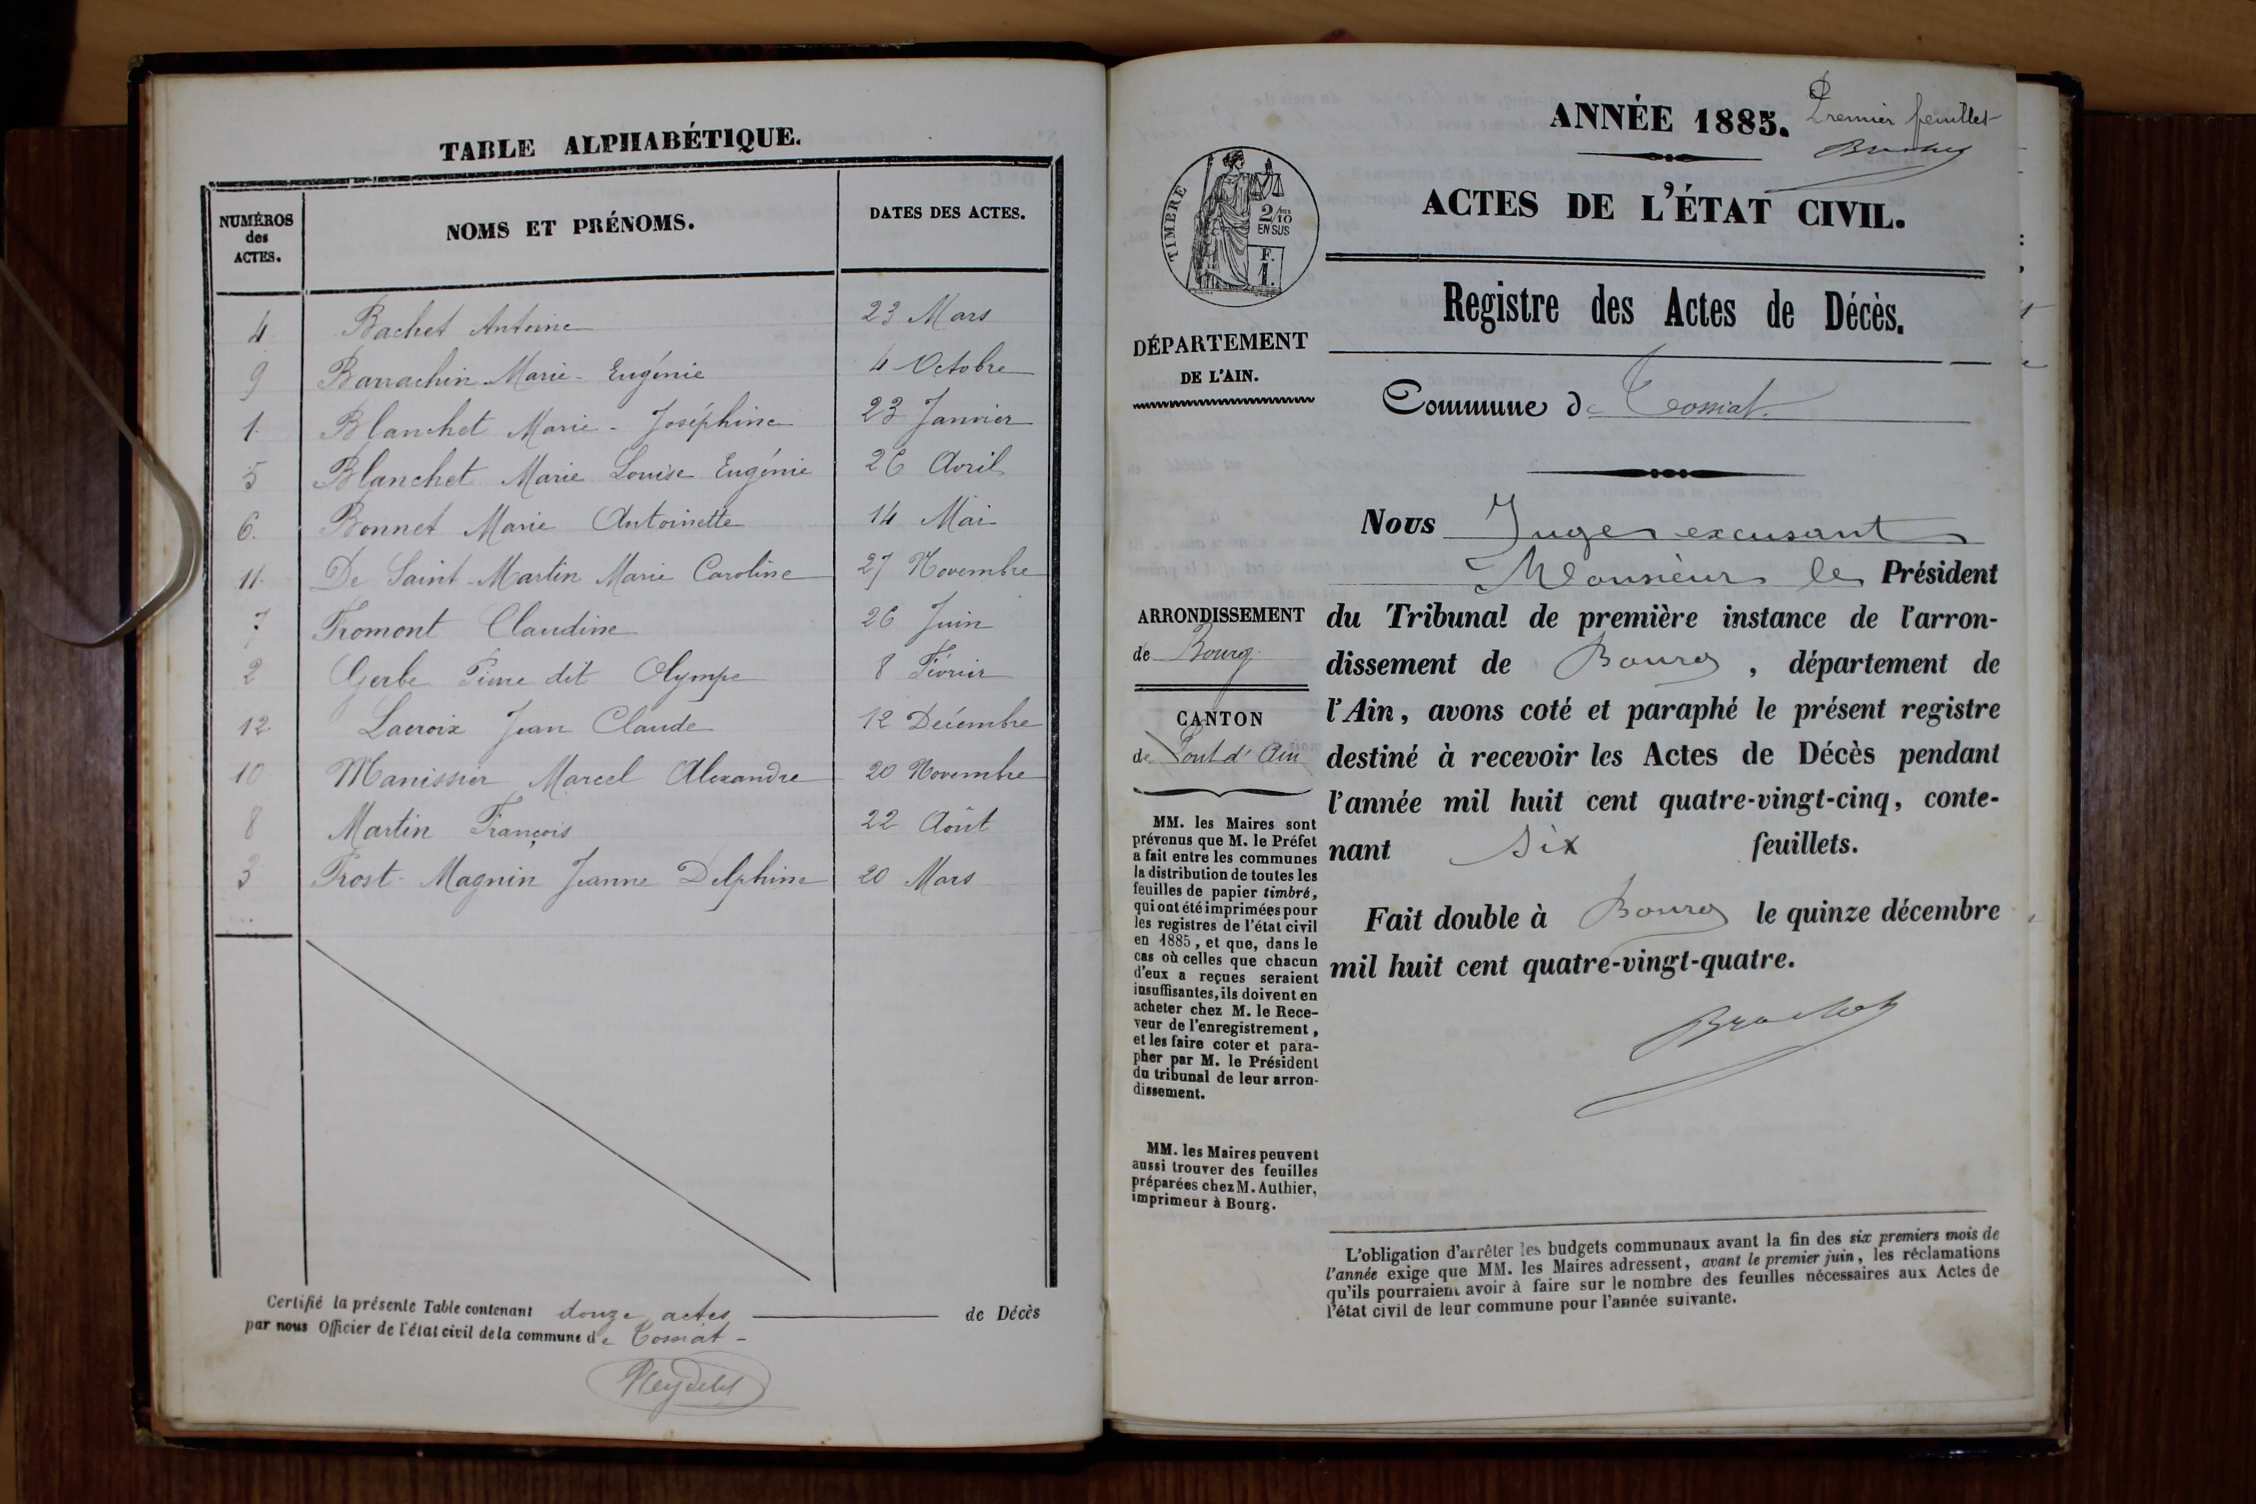 TABLE ALPHABÉTIQUE.
NUMÉROS des ACTES. NOMS ET PRÉNOMS. DATES DES ACTES.
4 Bachet Antoine 23 Mars
9 Barrachin Marie-Eugénie 4 Octobre
1. Blanchet Marie-Joséphine 23 Janvier
5 Blanchet Marie Louise Eugénie 26 Avril
6. Bonnet Marie Antoinette 14 Mai
11. De Saint-Martin Marie Caroline 27 Novembre
7 Fromont Claudine 26 Juin
2 Gerbe Pierre dit Olympe 8 Février
12 Lacroix Jean Claude 12 Décembre
10 Manissier Marcel Alexandre 20 Novembre
8 Martin François 22 Août
3 Prost-Magnin Jeanne Delphine 20 Mars
Certifié la présente Table contenant douze actes de Décès
par nous Officier de l'état civil de la commune de Tossiat -
ANNÉE 1885.
Premier feuillet
ACTES DE L'ÉTAT CIVIL.
TIMBRE
2/10
EN SUS
F.
1.
Registre des Actes de Décès.
DÉPARTEMENT
DE L'AIN.
Commune de Tossiat.
ARRONDISSEMENT
de Bourg.
CANTON
de Pont d'Ain
MM. les Maires sont
prévenus que M. le Préfet
a fait entre les communes
la distribution de toutes les
feuilles de papier timbré,
qui ont été imprimées pour
les registres de l'état civil
en 1885, et que, dans le
cas où celles que chacun
d'eux a reçues seraient
insuffisantes, ils doivent en
acheter chez M. le Rece-
veur de l'enregistrement,
et les faire coter et para-
pher par M. le Président
du tribunal de leur arron-
dissement.
MM. les Maires peuvent
aussi trouver des feuilles
préparées chez M. Authier,
imprimeur à Bourg.
Nous Juge excusant
Monsieur le Président
du Tribunal de première instance de l'arron-
dissement de Bourg, département de
l'Ain, avons coté et paraphé le présent registre
destiné à recevoir les Actes de Décès pendant
l'année mil huit cent quatre-vingt-cinq, conte-
nant six feuillets.
Fait double à Bourg le quinze décembre
mil huit cent quatre-vingt-quatre.
L'obligation d'arrêter les budgets communaux avant la fin des six premiers mois de
l'année exige que MM. les Maires adressent, avant le premier juin, les réclamations
qu'ils pourraient avoir à faire sur le nombre des feuilles nécessaires aux Actes de
l'état civil de leur commune pour l'année suivante.